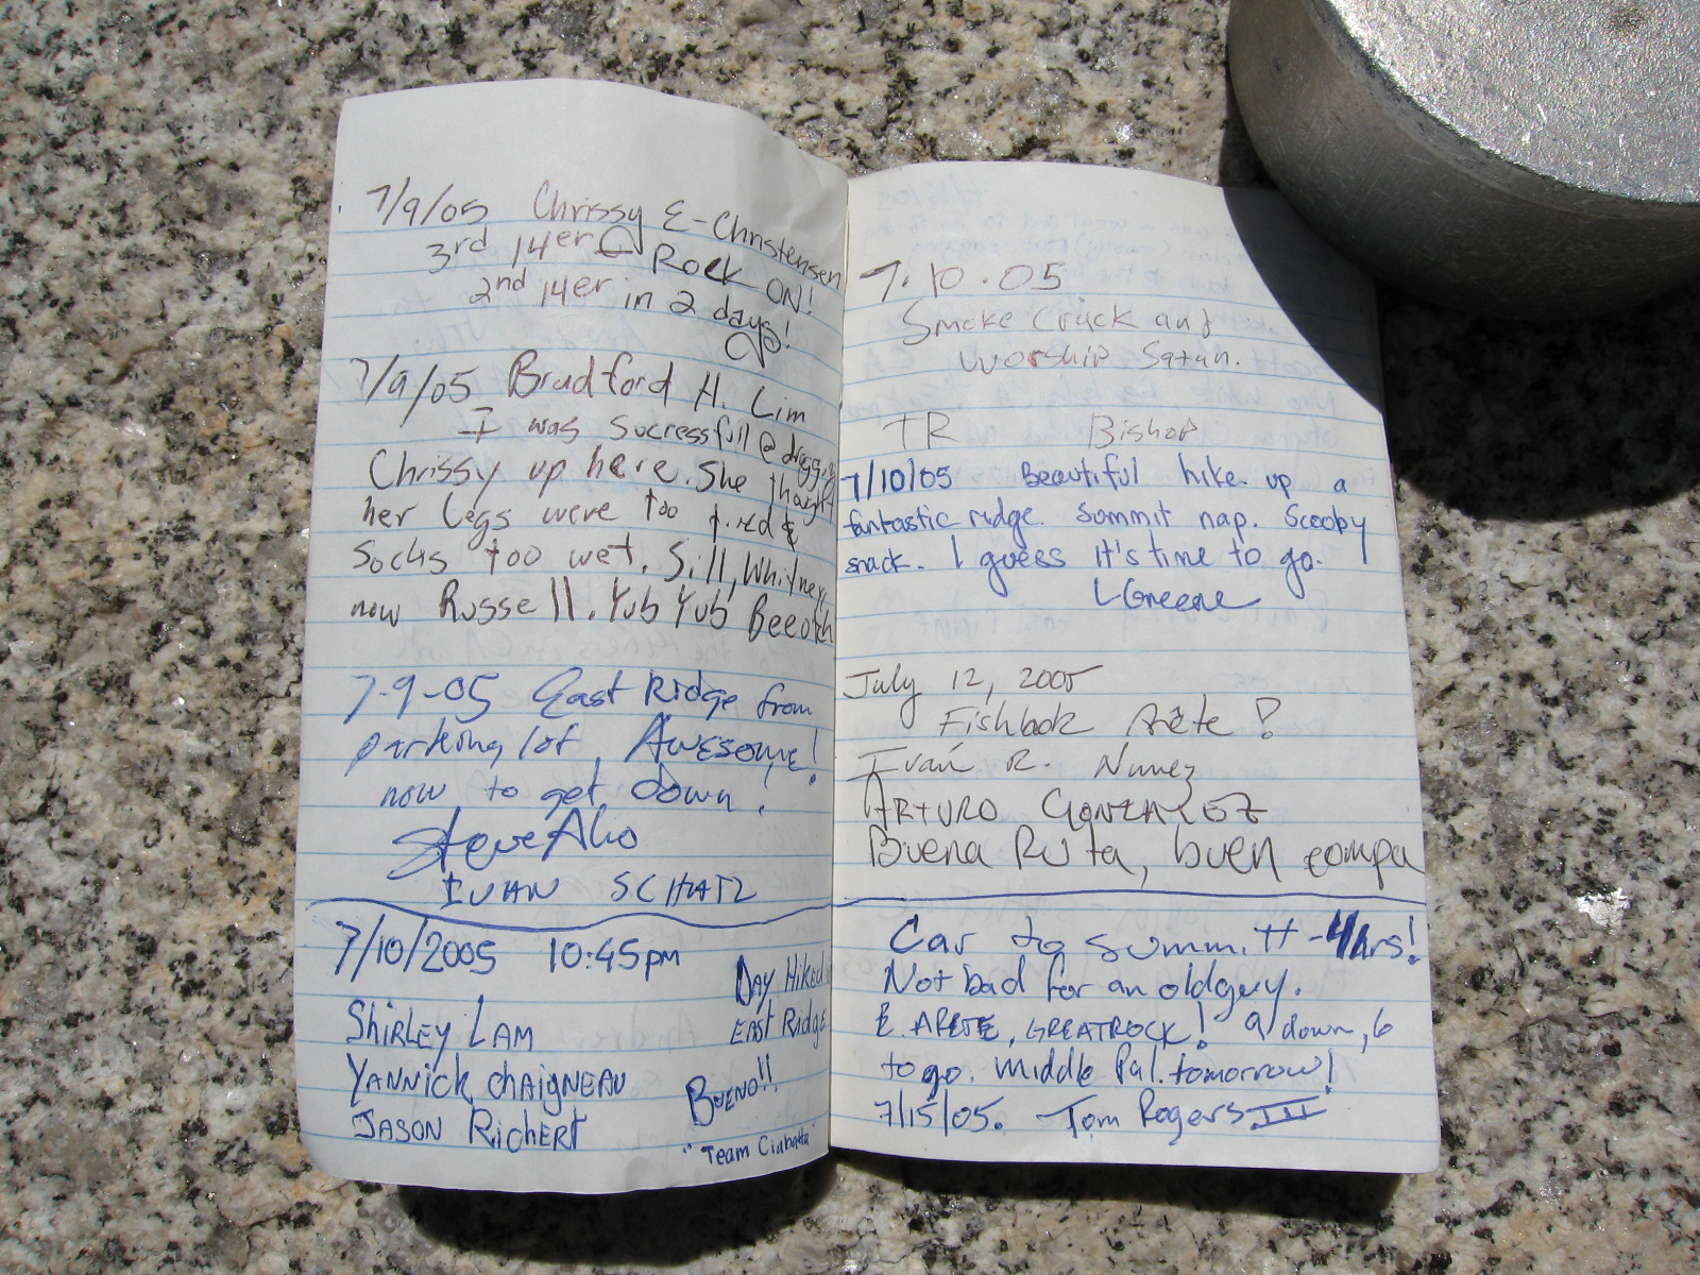 7/9/05 Chrissy E-Christensen
3rd 14er Rock ON!
2nd 14er in 2 days!
7/9/05 Bradford H. Lim
I was sucressfull @
Chrissy up here. She thought
her legs were too tired &
Socks too wet. Sill, Whitney,
now Russell. Yub Yub Beeotch
7-9-05 East Ridge from
parking lot, Awesome!
now to get down!
Steve
IVAN SCHATZ
7/10/2005 10:45pm
Day Hiked
East Ridge
Shirley Lam
Yannick Chaigneau
Bueno!!
Jason Richert
"Team Ciabatta"
7.10.05
Smoke Crack and
Worship Satan.
TR Bishop
7/10/05 Beautiful hike up a
fantastic ridge. Summit nap. Scooby
snack. I guess it's time to go.
LGreene
July 12, 2005
Fishbok Arête?
Iván R. Nunez
ARTURO GONZALEZ
Buena Ruta, buen compa
Car to summitt - 4hrs!
Not bad for an oldguy.
E. ARETE, GREATROCK! 9 down, 6
to go. Middle Pal. tomorrow!
7/15/05. Tom Rogers III